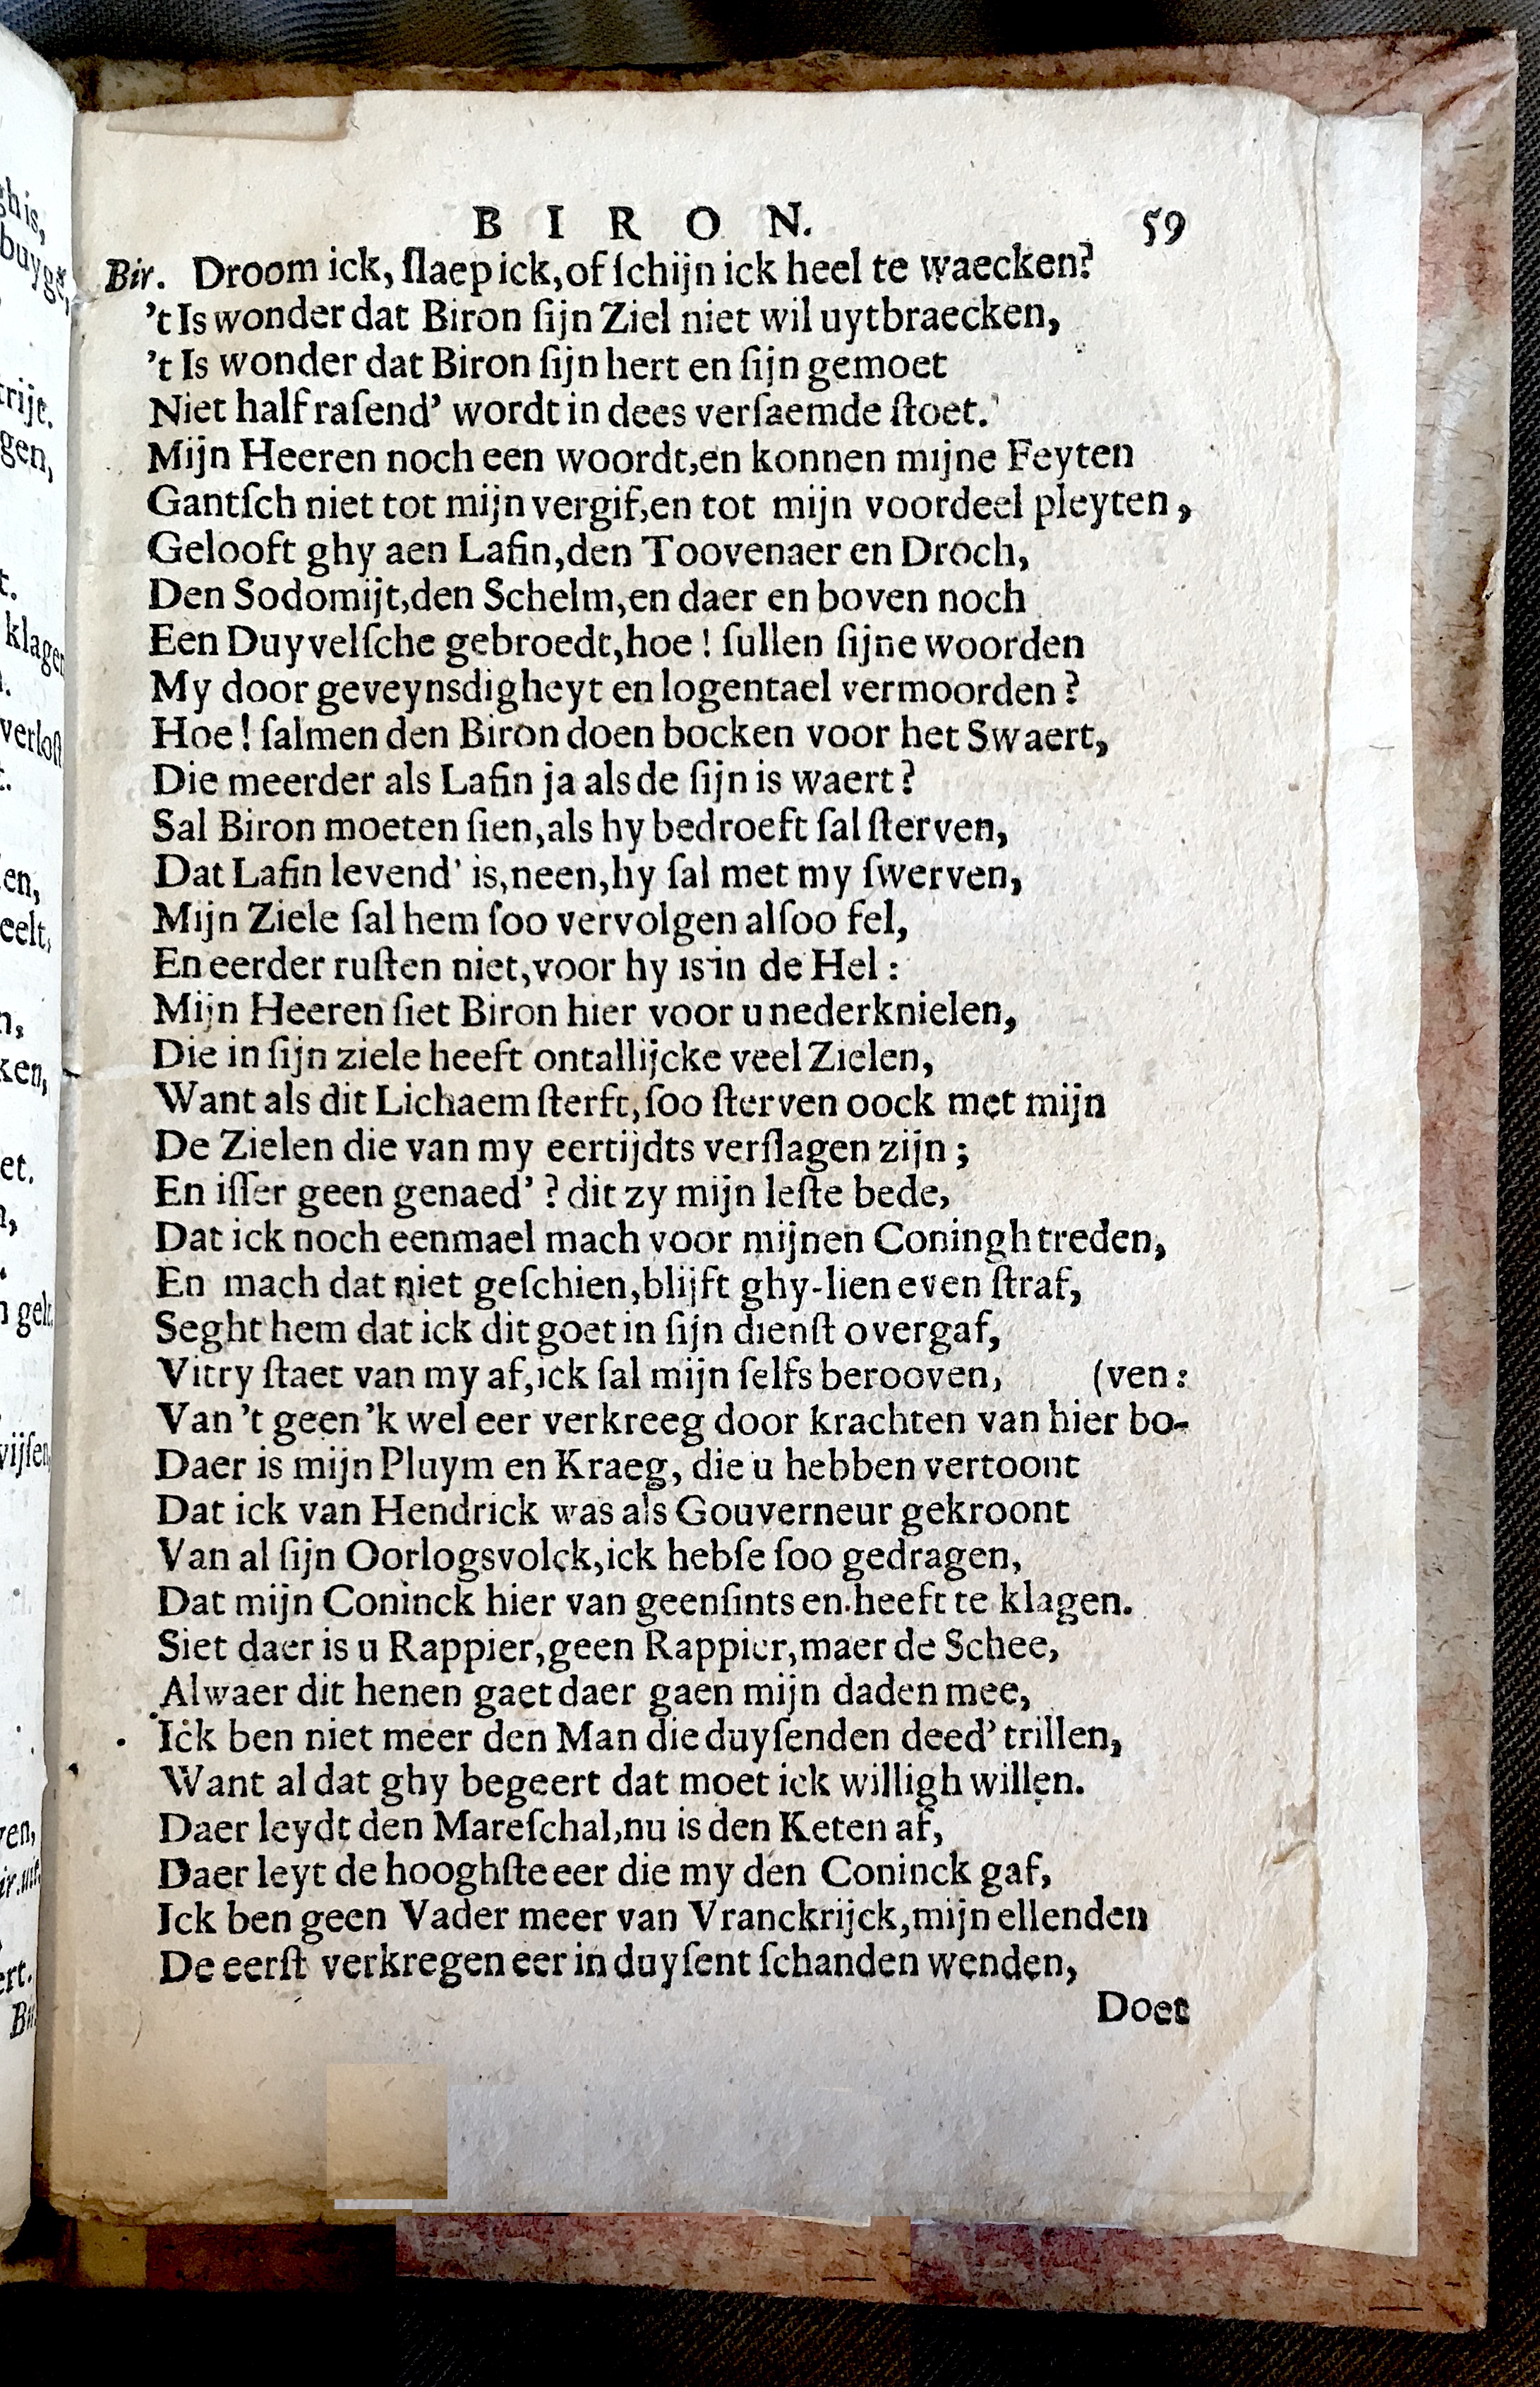 B I R O N. 59
Bir. Droom ick, ſlaep ick, of ſchijn ick heel te waecken?
't Is wonder dat Biron ſijn Ziel niet wil uytbraecken,
't Is wonder dat Biron ſijn hert en ſijn gemoet
Niet half raſend' wordt in dees verſaemde ſtoet.
Mijn Heeren noch een woordt, en konnen mijne Feyten
Gantſch niet tot mijn vergif, en tot mijn voordeel pleyten,
Gelooft ghy aen Lafin, den Toovenaer en Droch,
Den Sodomijt, den Schelm, en daer en boven noch
Een Duyvelſche gebroedt, hoe! ſullen ſijne woorden
My door geveynsdigheyt en logentael vermoorden?
Hoe! ſalmen den Biron doen bocken voor het Swaert,
Die meerder als Lafin ja als de ſijn is waert?
Sal Biron moeten ſien, als hy bedroeft ſal ſterven,
Dat Lafin levend' is, neen, hy ſal met my ſwerven,
Mijn Ziele ſal hem ſoo vervolgen alſoo fel,
En eerder ruſten niet, voor hy is in de Hel:
Mijn Heeren ſiet Biron hier voor u nederknielen,
Die in ſijn ziele heeft ontallijcke veel Zielen,
Want als dit Lichaem ſterft, ſoo ſterven oock met mijn
De Zielen die van my eertijdts verſlagen zijn;
En iſſer geen genaed'? dit zy mijn leſte bede,
Dat ick noch eenmael mach voor mijnen Coningh treden,
En mach dat niet geſchien, blijft ghy-lien even ſtraf,
Seght hem dat ick dit goet in ſijn dienſt overgaf,
Vitry ſtaet van my af, ick ſal mijn ſelfs berooven, (ven:
Van 't geen 'k wel eer verkreeg door krachten van hier bo-
Daer is mijn Pluym en Kraeg, die u hebben vertoont
Dat ick van Hendrick was als Gouverneur gekroont
Van al ſijn Oorlogsvolck, ick hebſe ſoo gedragen,
Dat mijn Coninck hier van geenſints en heeft te klagen.
Siet daer is u Rappier, geen Rappier, maer de Schee,
Alwaer dit henen gaet daer gaen mijn daden mee,
Ick ben niet meer den Man die duyſenden deed' trillen,
Want al dat ghy begeert dat moet ick willigh willen.
Daer leydt den Mareſchal, nu is den Keten af,
Daer leyt de hooghſte eer die my den Coninck gaf,
Ick ben geen Vader meer van Vranckrijck, mijn ellenden
De eerſt verkregen eer in duyſent ſchanden wenden,
Doet